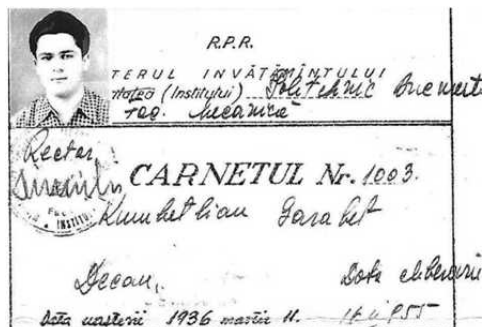 R.P.R.
TERUL INVĂTĂMÎNTULUI
itatea (Institutului) Politehnic Bucuresti
Fac. Mecanică
Rector,
CARNETUL Nr. 1003.
INSTITU
Kumbetlian Garabet
Decan, Data eliberarii
Data nasterii 1936 martie 11.